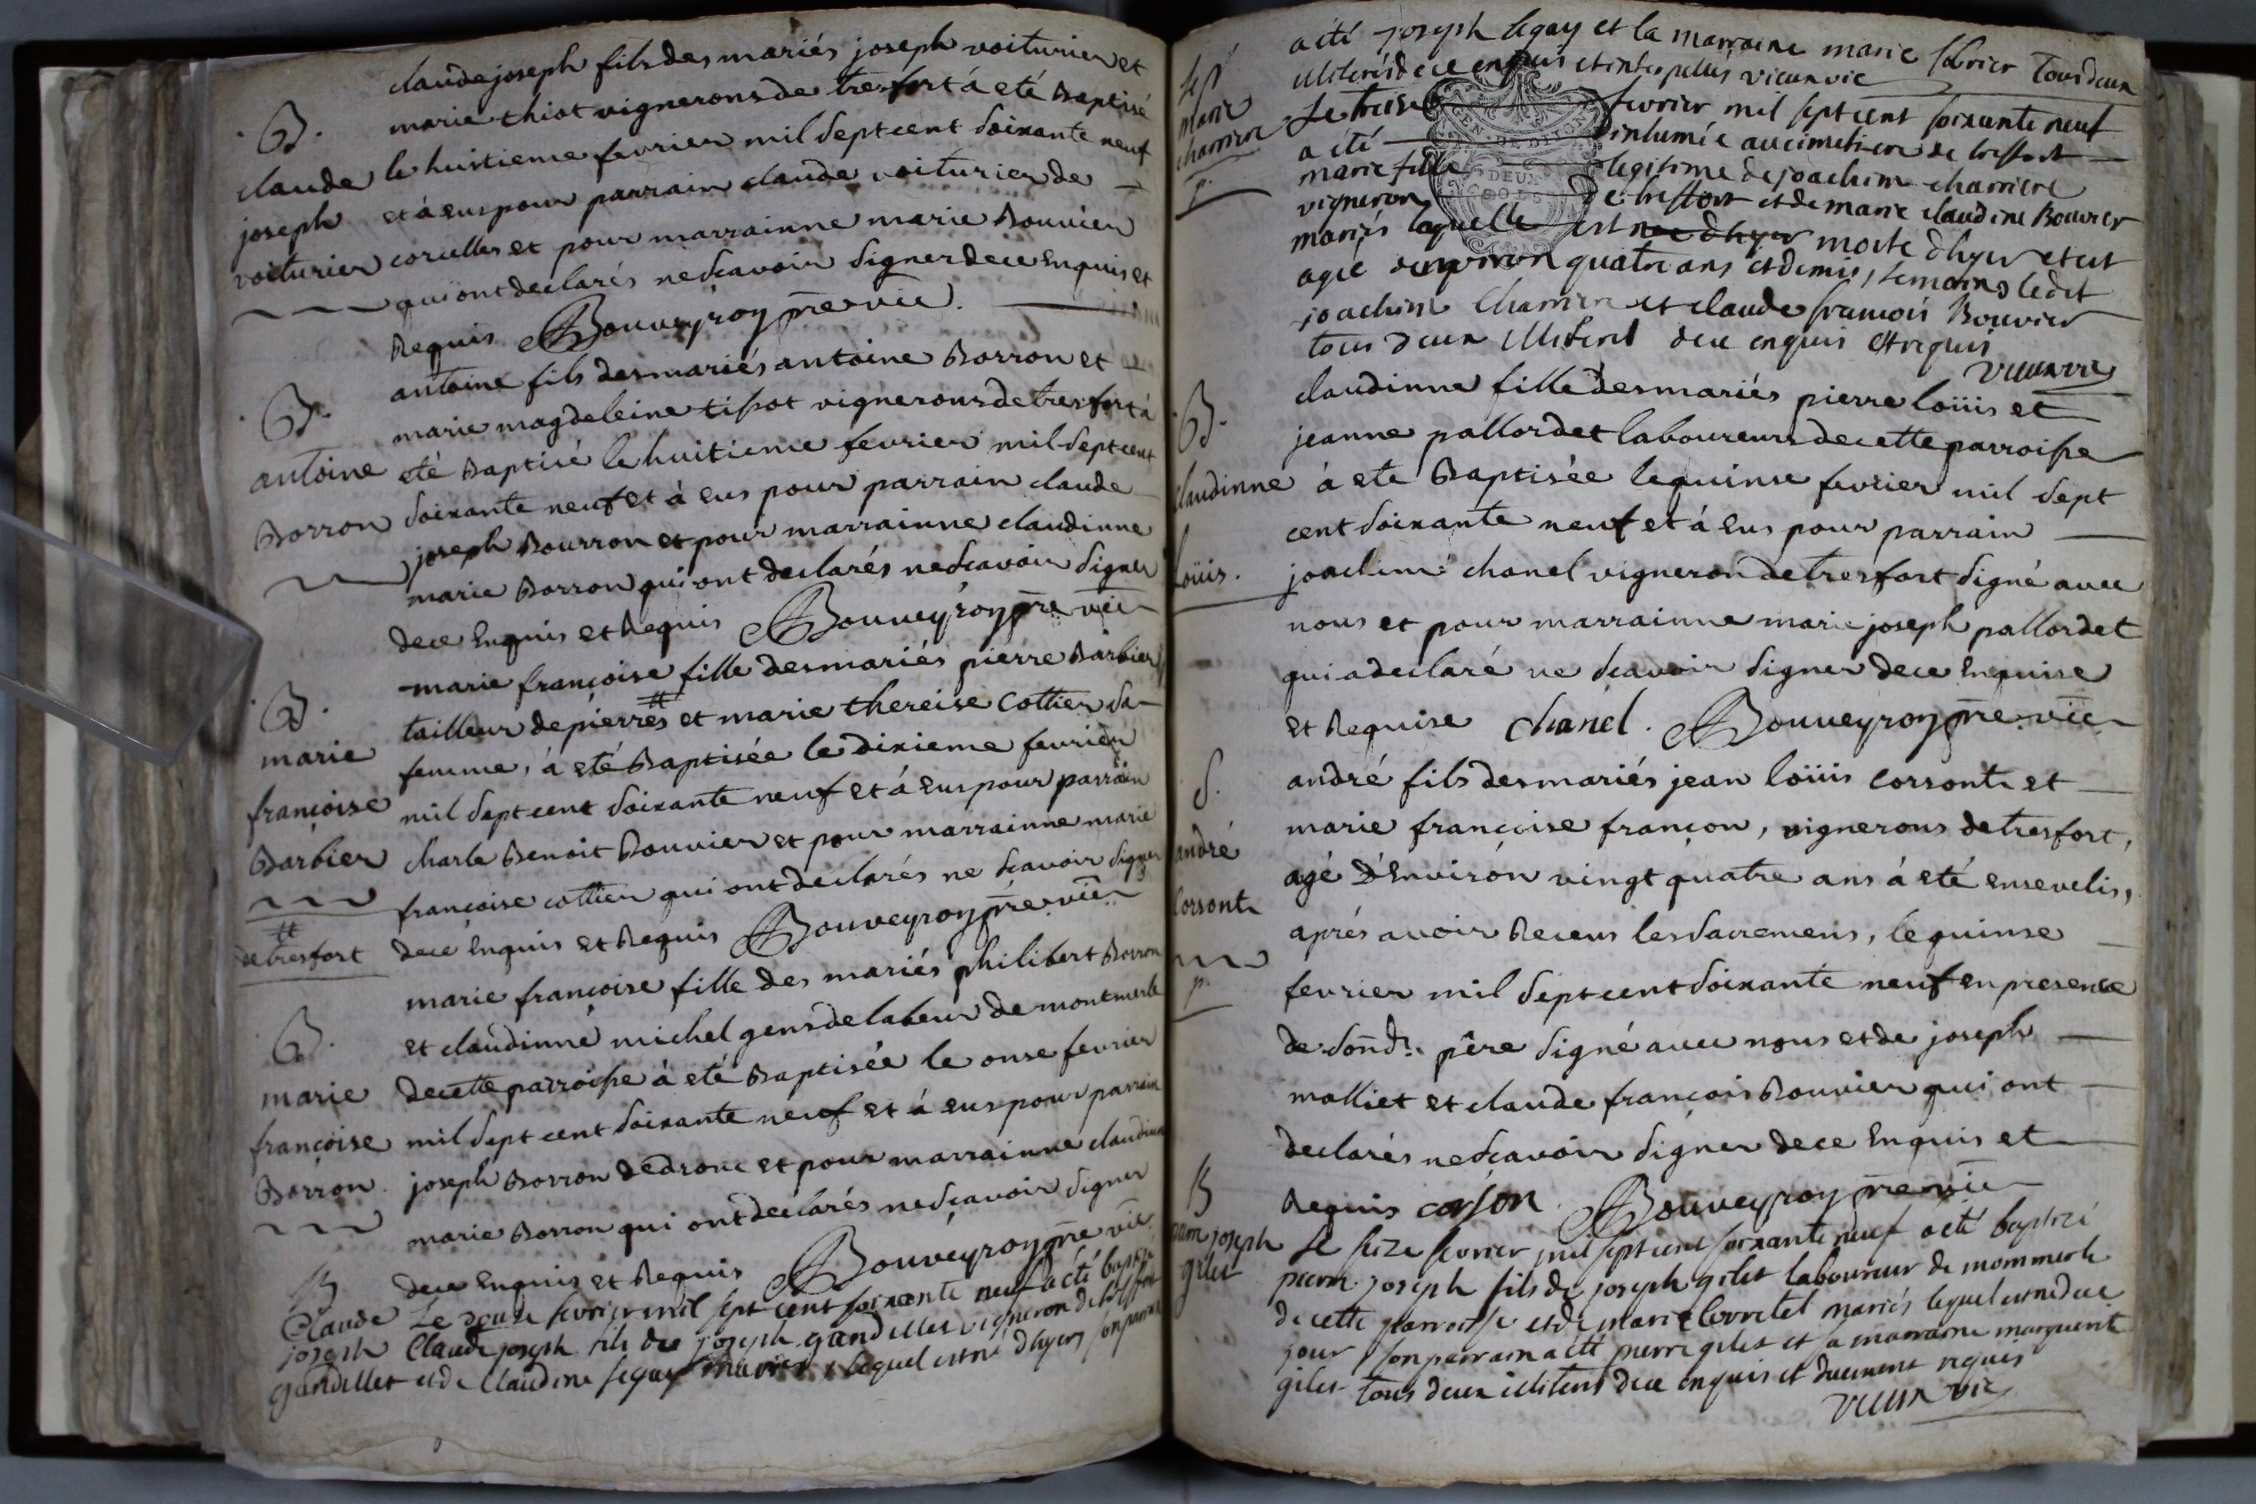 B.
claude
joseph
voiturier
claude joseph fils des mariés joseph voiturier et
marie thiot vignerons de tresfort à eté Baptisé
le huitieme fevrier mil sept cent soixante neuf
et à eus pour parrain claude voiturier de
corcelles et pour marrainne marie Bouvier
qui ont declarés ne scavoir signer de ce Enquis et
Requis Bouveyron pre vic
B.
antoine
Borron
antoine fils des mariés antoine Borron et
marie magdeleine tissot vignerons de tresfort à
eté Baptisé le huitieme fevrier mil sept cent
soixante neuf et à eus pour parrain claude
joseph Bourron et pour marrainne claudinne
marie Borron qui ont declarés ne scavoir signer
de ce Enquis et Requis Bouveyron pre vic
B.
marie
françoise
Barbier
#
de tresfort
marie françoise fille des mariés pierre Barbier
tailleur de pierres # et marie thereise Cottier sa
femme, à eté Baptisée le dixieme fevrier
mil sept cent soixante neuf et à eus pour parrain
charle Benoit Bouvier et pour marrainne marie
françoise cottier qui ont declarés ne scavoir signer
de ce Enquis et Requis Bouveyron pre vic
B.
marie
françoise
Borron
marie françoise fille des mariés philibert Borron
et claudinne michel gens de labeur de montmerle
de cette parroisse à eté Baptisée le onse fevrier
mil sept cent soixante neuf et à eus pour parrain
joseph Borron de drom et pour marrainne claudine
marie Borron qui ont declarés ne scavoir signer
de ce Enquis et Requis Bouveyron pre vic
B
Claude
joseph
gandillet
Le douze fevrier mil sept cent soixante neuf a été baptisé
Claude joseph fils de joseph gandillet vigneron de tresfort
et de Claudine legay mariés, lequel est né d'hyer son parrain
a été joseph legay et la marraine marie fevrier tous deux
illiterés de ce enquis et interpellés vieux vic
Sep
Marie
charriere
p.
Le treise fevrier mil sept cent soixante neuf
a été inhumée au cimetiere de tressort
marie fille legitime de joachim charriere
vigneron de tressort et de marie claudine Bouvier
mariés laquelle est née d'hyer morte d'hyer et est
agée d'environ quatre ans et demis, temoins ledit
joachim Charriere et claude francois Bouvier
tous deux illiterés de ce enquis et requis
vieux vic
B.
claudinne
Loüis.
claudinne fille des mariés pierre loüis et
jeanne pallordet laboureurs de cette parroisse
à eté Baptisée le quinse fevrier mil sept
cent soixante neuf et à eus pour parrain
joachim chanel vigneron de tresfort signé avec
nous et pour marrainne marie joseph pallordet
qui a declaré ne scavoir signer de ce Enquise
et Requise chanel. Bouveyron pre vic
S.
andré
Corsont
p.
andré fils des mariés jean loüis corsont et
marie françoise françon, vignerons de tresfort,
agé d'Environ vingt quatre ans à eté ensevelis,
aprés avoir Receus les sacremens, le quinse
fevrier mil sept cent soixante neuf en presence
de sond. pêre signé avec nous et de joseph
molliet et claude françois Bouvier qui ont
declarés ne scavoir signer de ce Enquis et
Requis corson Bouveyron pre vic
B
pierre joseph
gilet
Le seize fevrier mil sept cent soixante neuf a été baptisé
pierre joseph fils de joseph gilet laboureur de mommerle
de cette parroisse et de marie Corretel mariés lequel est né de ce
jour, son parrain a été pierre gilet et sa marraine marguerite
gilet tous deux illiterés de ce enquis et duement requis
vieux vic